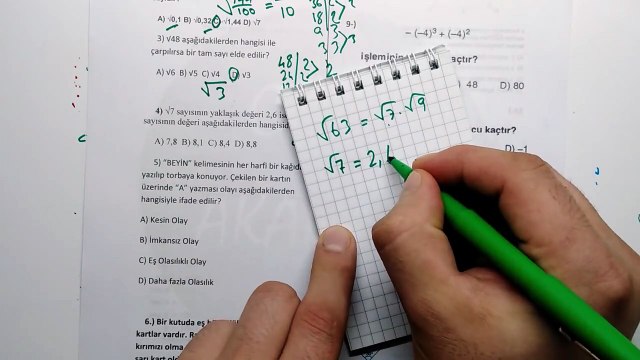 A) √0,1 B) √0,32 C) √1,44 D) √7
3) √48 aşağıdakilerden hangisi ile
çarpılırsa bir tam sayı elde edilir?
A) √6 B) √5 C) √4 D) √3
√3
48 2
24 2
2
10
36
18 2
9 3
3 3
4) √7 sayısının yaklaşık değeri 2,6
sayısının değeri aşağıdakilerden
A) 7,8 B) 8,1 C) 8,4 D) 8,8
5) "BEYİN" kelimesinin her harfi bir
yazılıp torbaya konuyor. Çekilen bir kartın
üzerinde "A" yazması olayı aşağıdakilerden
hangisiyle ifade edilir?
A) Kesin Olay
B) İmkansız Olay
C) Eş Olasılıklı Olay
D) Daha fazla Olasılık
6.) Bir kutuda eş
kartlar vardır.
kırmızı olma
sarı kart
− (−4)³ + (−4)²
48 D) 80
kaçtır?
D) −1
√63 = √7 . √9
√7 = 2,